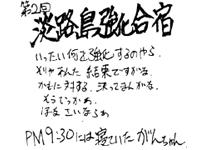 第2回
淡路島強化合宿
いったい何を強化するのやら.
そりゃあんた 結束ですがな.
かもに対する. 決ってまんがな.
もうてっかぁ.
ほな てっならぁ
PM9:30には寝ていた がんちゃん